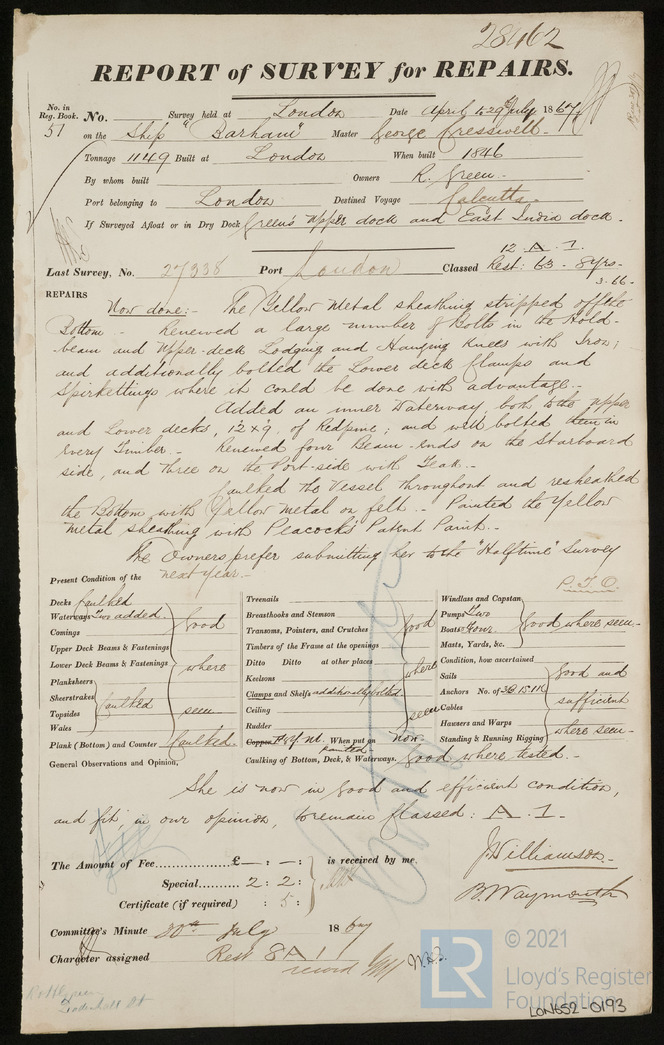 28462
REPORT of SURVEY for REPAIRS.
No. in Reg. Book. No. Survey held at London Date April to 29th July 1867
51 on the Ship "Barham" Master George Cresswell
Tonnage 1149 Built at London When built 1846
By whom built Owners R. Green
Port belonging to London Destined Voyage Calcutta
If Surveyed Afloat or in Dry Dock Green's Upper dock and East India dock.
12 A.1.
Last Survey, No. 27338 Port London Classed Rest: 63 - 8 yrs -
3.66.
REPAIRS
Now done:- The Yellow Metal sheathing stripped off the
Bottom - Renewed a large number of Bolts in the Hold-
beam and Upper-deck Lodging and Hanging Knees with Iron;
and additionally bolted the Lower deck Clamps and
Spirkettings where it could be done with advantage.-
Added an inner Waterway, both to the Upper
and Lower decks, 12 x 9. of Redpine; and well bolted them in
every Timber.- Renewed four Beam-ends on the Starboard
side, and three on the Port-side with Teak.-
Caulked the Vessel throughout and resheathed
the Bottom with Yellow Metal on felt.- Painted the Yellow
metal sheathing with Peacock's Patent Paint.-
The Owners prefer submitting her to the "Halftime" Survey
next year.-
P.T.O.
Present Condition of the
Decks Caulked
Waterways Two added.
Comings
Upper Deck Beams & Fastenings
Lower Deck Beams & Fastenings
Planksheers
Sheerstrakes
Topsides
Wales
caulked
Good where seen
Plank (Bottom) and Counter Caulked.
General Observations and Opinion,
Treenails
Breasthooks and Stemson
Transoms, Pointers, and Crutches
Timbers of the Frame at the openings
Ditto Ditto at other places
Keelsons
Clamps and Shelfs additionally bolted
Ceiling
Rudder
good where seen
Copper Y. Mt. When put on Now.
painted
Caulking of Bottom, Deck, & Waterways. Good where tested.-
Windlass and Capstan
Pumps Two
Boats Four.
Masts, Yards, &c.
Good where seen-
Condition, how ascertained
Sails
Anchors No. of
Cables
Hawsers and Warps
Standing & Running Rigging
Good and sufficient where seen-
She is now in good and efficient condition,
and fit, in our opinion, to remain Classed: A.1.-
The Amount of Fee £ —: —:
is received by me,
Special 2: 2:
Certificate (if required) : 5:
J. Williamson.
B. Waymouth
Committee's Minute 30th July 1867
Character assigned Rest 8 A 1
record
LR © 2021
Lloyd's Register
Foundation
LON652-0193